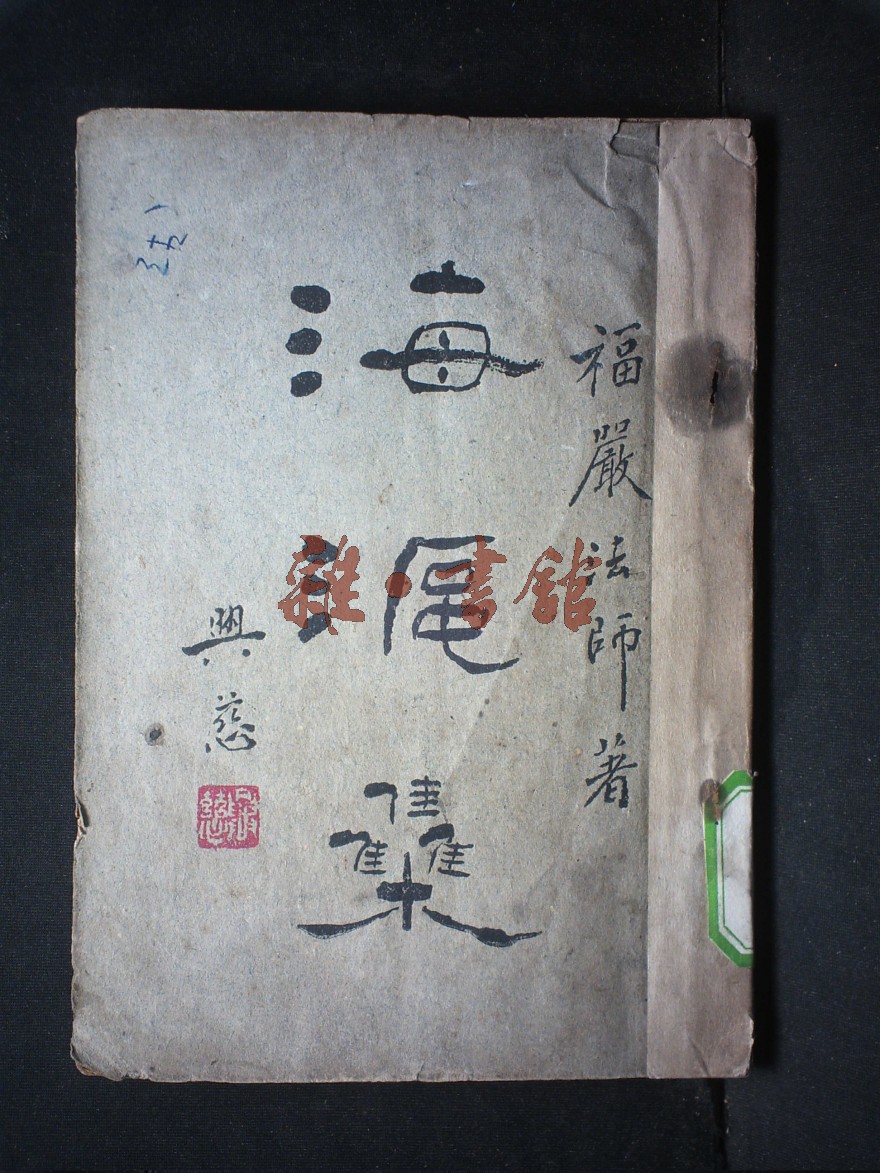 福嚴法師著
海
集
興慈
雜·書館